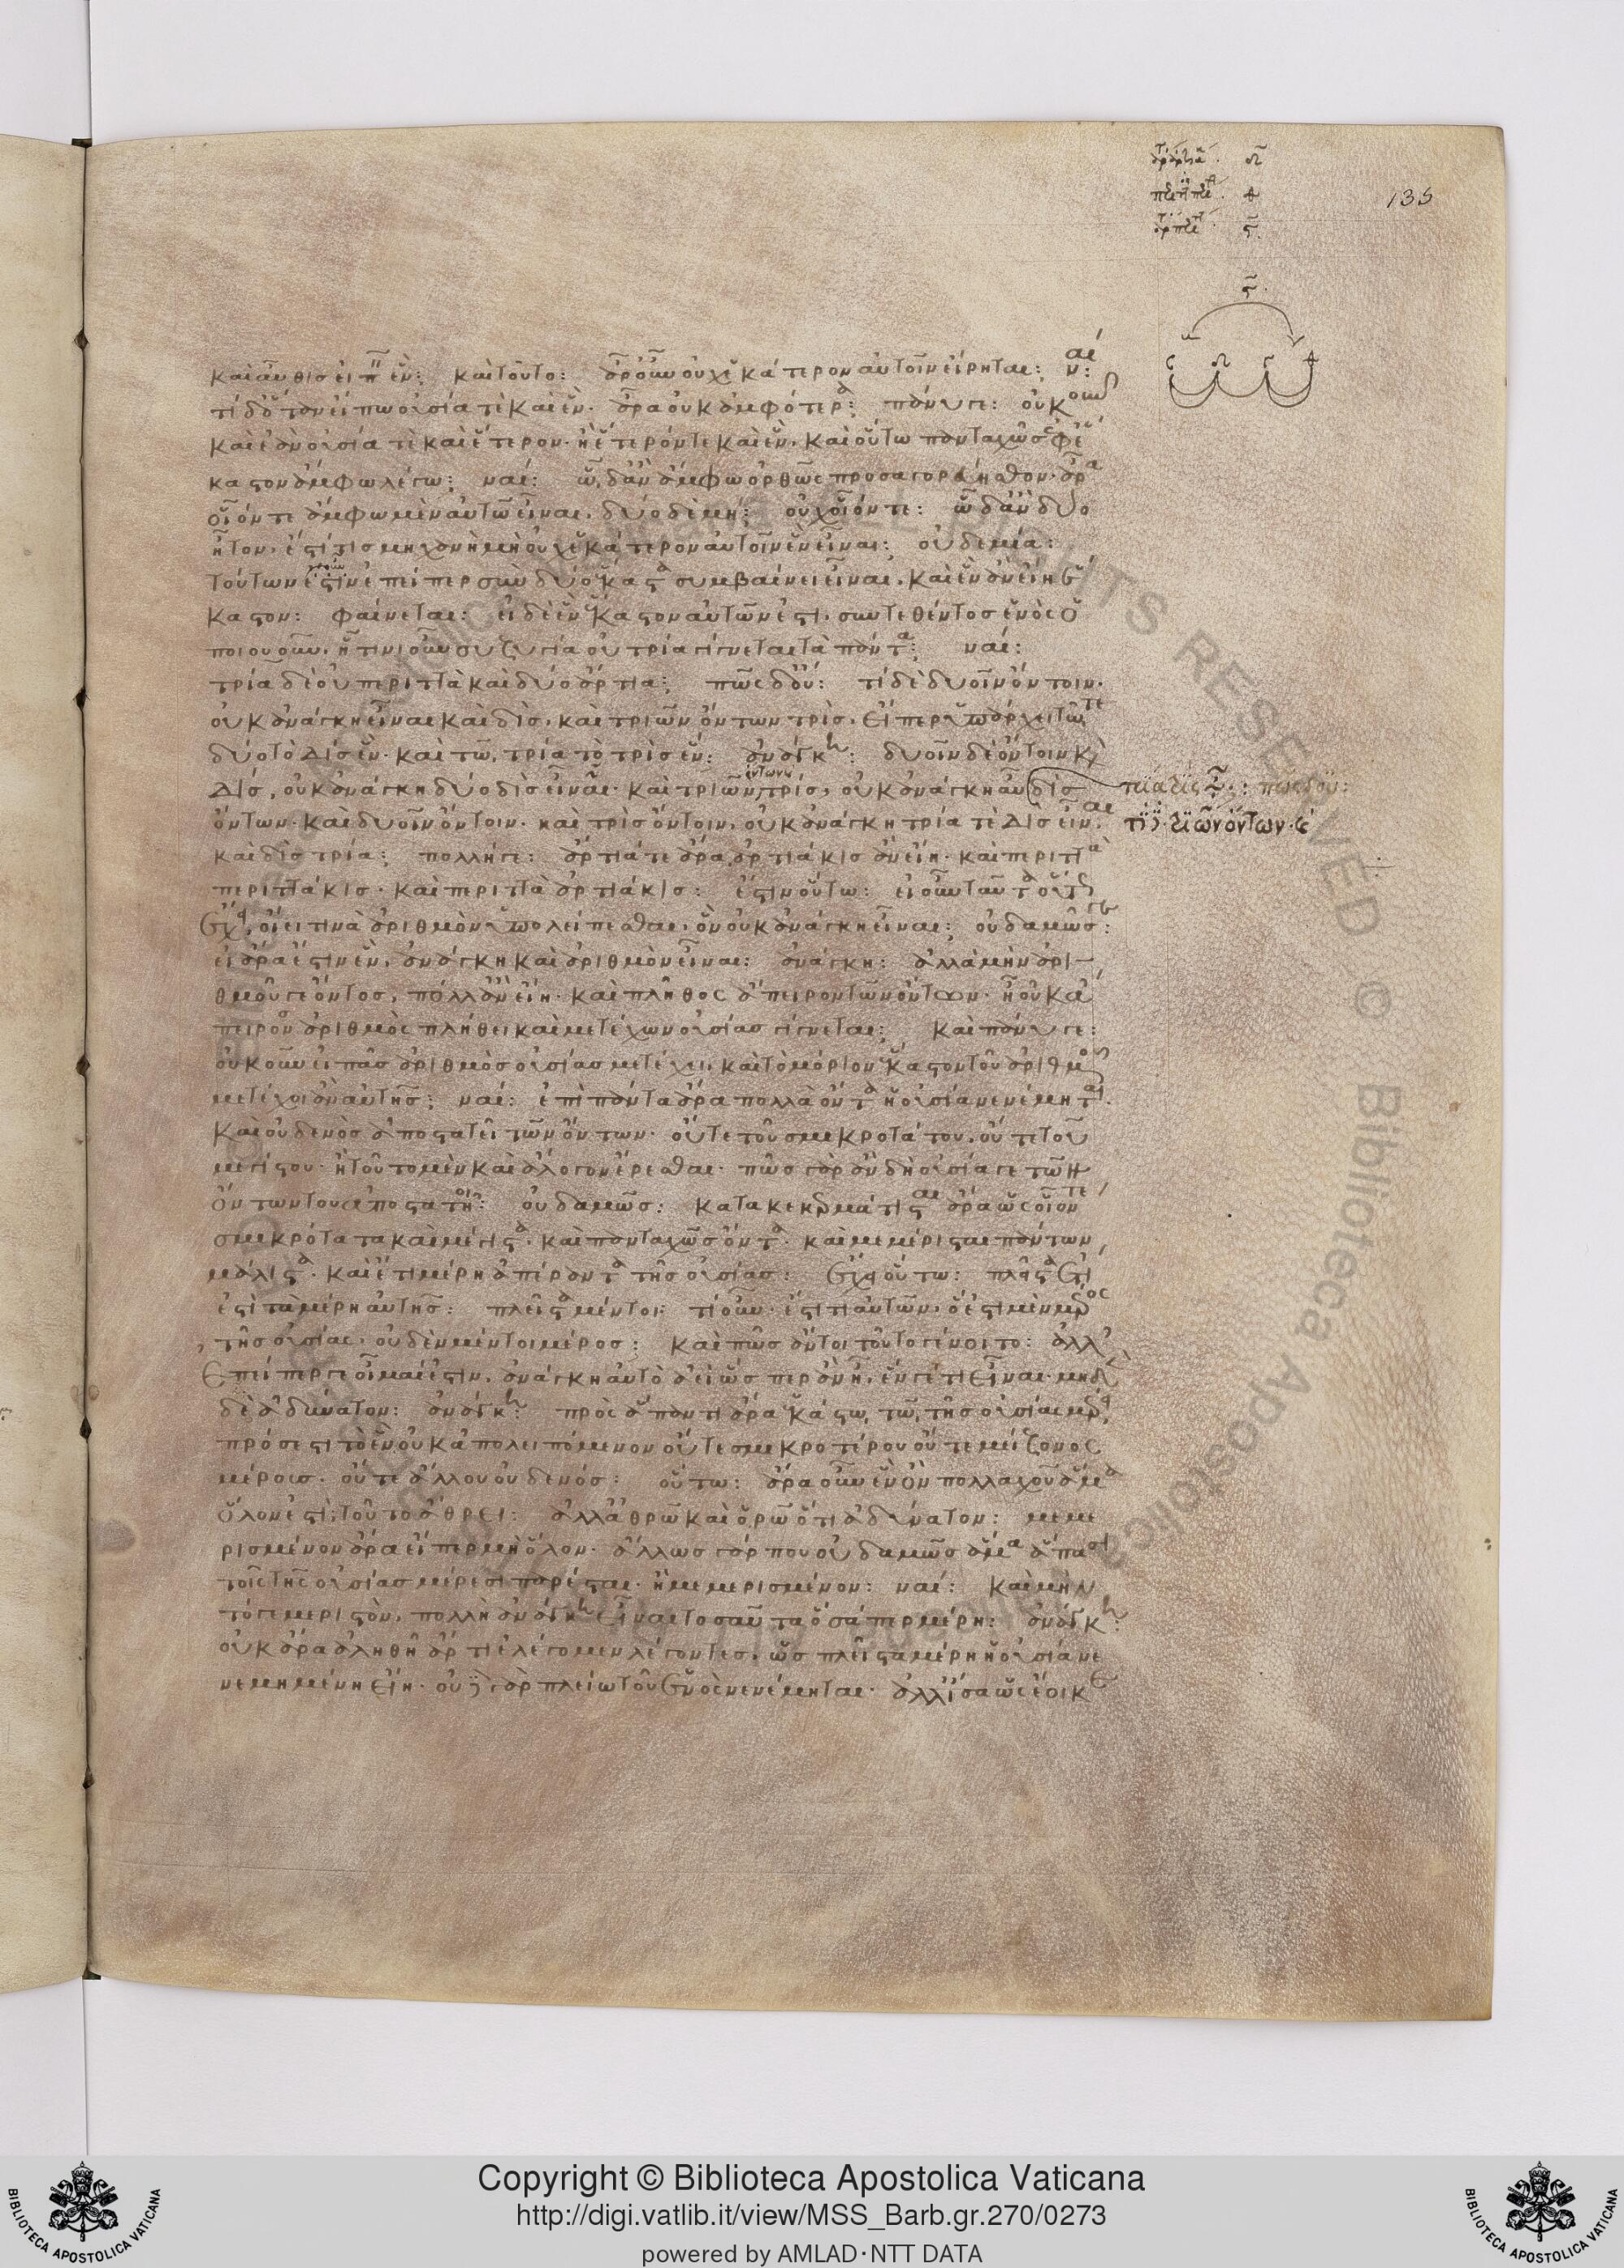 135
καὶ αὖθις εἰπεῖν ἕν: καὶ τοῦτο: ἆρ' οὖν οὐχ ἑκάτερον αὐτοῖν εἴρηται: ναί:
τί δ' ὅταν εἴπω οὐσία τὲ καὶ ἕν· ἆρα οὐκ ἀμφότερα: πάνυ γε: οὐκοῦν
καὶ ἐὰν οὐσία τὲ καὶ ἕτερον· ἢ ἕτερόν τε καὶ ἕν, καὶ οὕτω πανταχῶς ἐφ' ἕ
καστον ἄμφω λέγω: ναί: ὣ δ' ἂν ἄμφω ὀρθῶς προσαγορεύησθον· ἆρα
οἷόν τε ἄμφω μὲν αὐτὼ εἶναι, δύο δὲ μή: οὐχ οἷόν τε: ὣ δ' ἂν δύο
ἦτον, ἔστι τίς μηχανὴ μὴ οὐχ ἑκάτερον αὐτοῖν ἓν εἶναι: οὐδεμία:
τούτων ἐπείπερ σὺν δύο ἕκαστα συμβαίνει εἶναι, καὶ ἓν ἂν εἴη ἕ
καστον: φαίνεται: εἰ δὲ ἓν ἕκαστον αὐτῶν ἐστι, συντεθέντος ἑνὸς ὁ
ποιουοῦν, ᾗτινι οὖν συζυγία οὐ τρία γίγνεται τὰ πάντα: ναί:
τρία δὲ οὐ περιττὰ καὶ δύο ἄρτια: πῶς δ' οὔ: τί δὲ δυοῖν ὄντοιν·
οὐκ ἀνάγκη εἶναι καὶ δὶς, καὶ τριῶν ὄντων τρὶς, εἴπερ ὑπάρχει τῷ τε
δύο τὸ δὶς ἕν· καὶ τῷ τρία τὸ τρὶς ἕν: ἀνάγκη: δυοῖν δὲ ὄντοιν καὶ
δίς, οὐκ ἀνάγκη δύο δὶς εἶναι· καὶ τριῶν ὄντων τρίς, οὐκ ἀνάγκη αὖ δὶς
ὄντων· καὶ δυοῖν ὄντοιν· καὶ τρὶς ὄντοιν, οὐκ ἀνάγκη τρία τὲ δὶς εἶναι
καὶ δὶς τρία: πολλή γε: ἄρτιά τε ἄρα ἀρτιάκις ἂν εἴη· καὶ περιττὰ
περιττάκις· καὶ περιττὰ ἀρτιάκις: ἔστιν οὕτω: εἰ οὖν ταῦτα οὕτως
ἔχει, οἴει τινὰ ἀριθμὸν ὑπολείπεσθαι, ὃν οὐκ ἀνάγκη εἶναι: οὐδαμῶς γε:
εἰ ἄρα ἔστιν ἕν, ἀνάγκη καὶ ἀριθμὸν εἶναι: ἀνάγκη: ἀλλὰ μὴν ἀρι
θμοῦ γε ὄντος, πόλλ' ἂν εἴη· καὶ πλῆθος ἄπειρον τῶν ὄντων· ἢ οὐκ ἄ
πειρον ἀριθμὸς πλήθει καὶ μετέχων οὐσίας γίγνεται: καὶ πάνυ γε:
οὐκοῦν εἰ πᾶς ἀριθμὸς οὐσίας μετέχει, καὶ τὸ μόριον ἕκαστον τοῦ ἀριθμοῦ
μετέχοι ἂν αὐτῆς: ναί: ἐπὶ πάντα ἄρα πολλὰ ὄντα ἡ οὐσία νενέμηται·
καὶ οὐδενὸς ἀποστατεῖ τῶν ὄντων· οὔτε τοῦ σμικροτάτου, οὔτε τοῦ
μεγίστου· ἢ τοῦτο μὲν καὶ ἄλογον ἔρεσθαι· πῶς γὰρ ἂν δὴ οὐσία γε τῶν
ὄντων του ἀποστατοίη: οὐδαμῶς: κατακεκερμάτισται ἄρα ὡς οἷόν τε
σμικρότατα καὶ μέγιστα· καὶ πανταχῶς ὄντα· καὶ μεμέρισται πάντων
μάλιστα· καὶ ἔστι μέρη ἀπέραντα τῆς οὐσίας: ἔχει οὕτω: πλεῖστα
ἐστὶ τὰ μέρη αὐτῆς: πλεῖστα μέντοι: τί οὖν· ἔστι τι αὐτῶν, ὅ ἐστι μὲν μέρος
τῆς οὐσίας, οὐδὲν μέντοι μέρος: καὶ πῶς ἄν τοι τοῦτο γένοιτο: ἀλλ'
ἐπείπερ γε οἶμαι ἔστιν, ἀνάγκη αὐτὸ ἀεὶ ὥσπερ ἂν ᾖ, ἕν γέ τι εἶναι· μηδὲν
δὲ ἀδύνατον: ἀνάγκη: πρὸς ἅπαντι ἄρα ἑκάστῳ τῷ τῆς οὐσίας μέρει
πρόσεστι τὸ ἓν οὐκ ἀπολειπόμενον οὔτε σμικροτέρου οὔτε μείζονος
μέρους· οὔτε ἄλλου οὐδενός: οὕτω: ἆρα οὖν ἓν ὂν πολλαχοῦ ἅμα
ὅλον ἐστί; τοῦτο ἄθρει: ἀλλ' ἀθρῶ καὶ ὁρῶ ὅτι ἀδύνατον: μεμε
ρισμένον ἄρα εἴπερ μὴ ὅλον· ἄλλως γάρ που οὐδαμῶς ἅμα ἅπασι
τοῖς τῆς οὐσίας μέρεσι παρέσται· ἢ μεμερισμένον: ναί: καὶ μὴν
τό γε μεριστὸν, πολλὴ ἀνάγκη εἶναι τοσαῦτα ὅσα περ μέρη: ἀνάγκη:
οὐκ ἄρα ἀληθῆ ἄρτι ἐλέγομεν λέγοντες, ὡς πλεῖστα μέρη ἡ οὐσία νε
νεμημένη εἴη· οὐδὲ γὰρ πλείω τοῦ ἑνὸς νενέμηται· ἀλλ' ἴσα ὡς ἔοικε
Copyright © Biblioteca Apostolica Vaticana
http://digi.vatlib.it/view/MSS_Barb.gr.270/0273
powered by AMLAD·NTT DATA